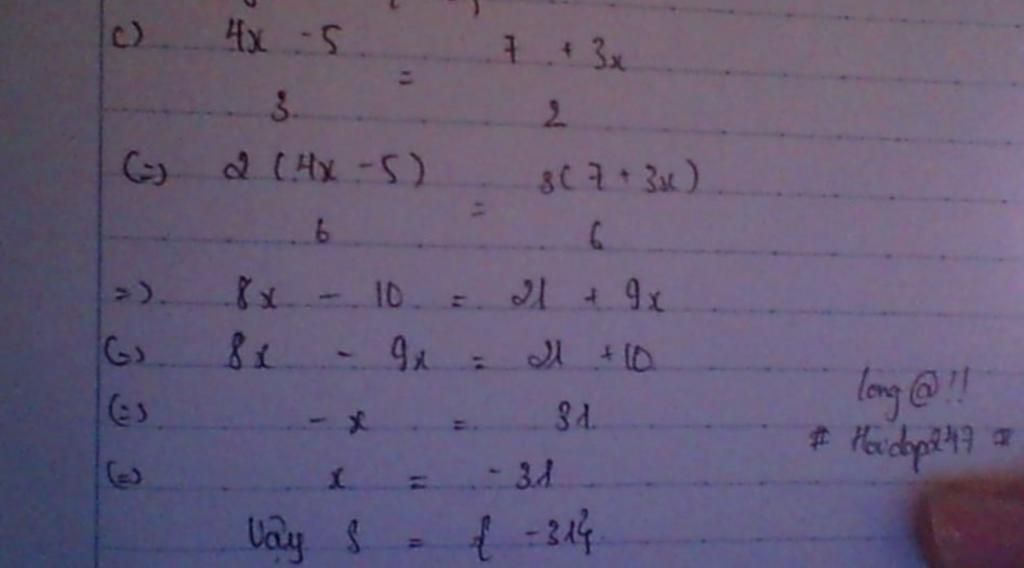 c) 4x - 5 = 7 + 3x
3 2
(=) 2 (4x - 5) = 3( 7 + 3x )
6 6
=) 8x - 10 = 21 + 9x
(=) 8x - 9x = 21 + 10
(=) - x = 31
(=) x = - 31
Vậy S = { - 31}
long @!!
# Hoidap247 #